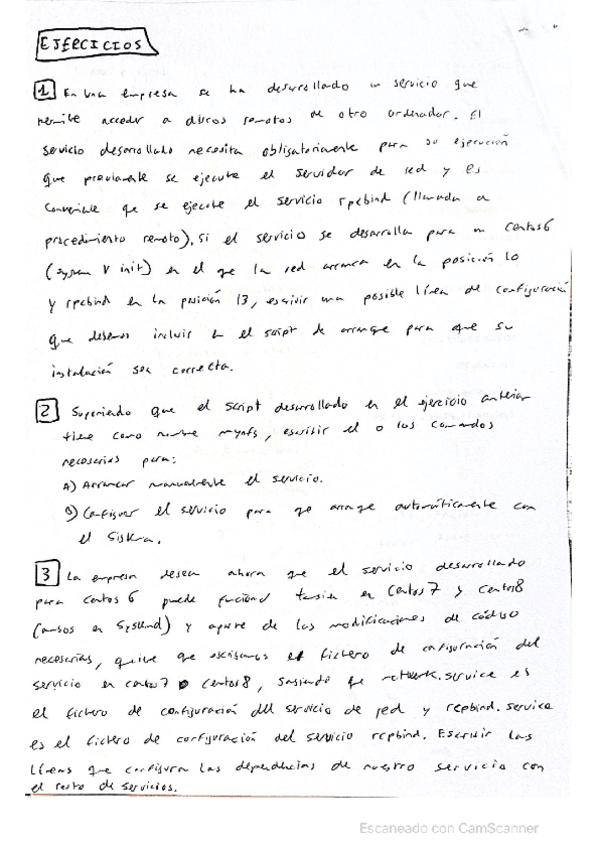 EJERCICIOS
1 En una empresa se ha desarrollado un servicio que
permite acceder a discos remotos de otro ordenador. El
servicio desarrollado necesita obligatoriamente para su ejecución
que previamente se ejecute el servidor de red y es
conveniente que se ejecute el servicio rpcbind (llamada a
procedimiento remoto). Si el servicio se desarrolla para un Centos 6
(System V init) en el que la red arranca en la posición 10
y rpcbind en la posición 13, escribir una posible línea de configuración
que debemos incluir en el script de arranque para que su
instalación sea correcta.
2 Suponiendo que el script desarrollado en el ejercicio anterior
tiene como nombre mynfs, escribir el o los comandos
necesarios para:
A) Arrancar manualmente el servicio.
B) Configurar el servicio para que arranque automáticamente con
el sistema.
3 La empresa desea ahora que el servicio desarrollado
para Centos 6 pueda funcionar también en Centos 7 y Centos 8
(ambos en Systemd) y aparte de las modificaciones de código
necesarias, quiere que escribamos el fichero de configuración del
servicio en Centos 7 o Centos 8, sabiendo que network.service es
el fichero de configuración del servicio de red y rcpbind.service
es el fichero de configuración del servicio rcpbind. Escribir las
líneas que configuran las dependencias de nuestro servicio con
el resto de servicios.
Escaneado con CamScanner